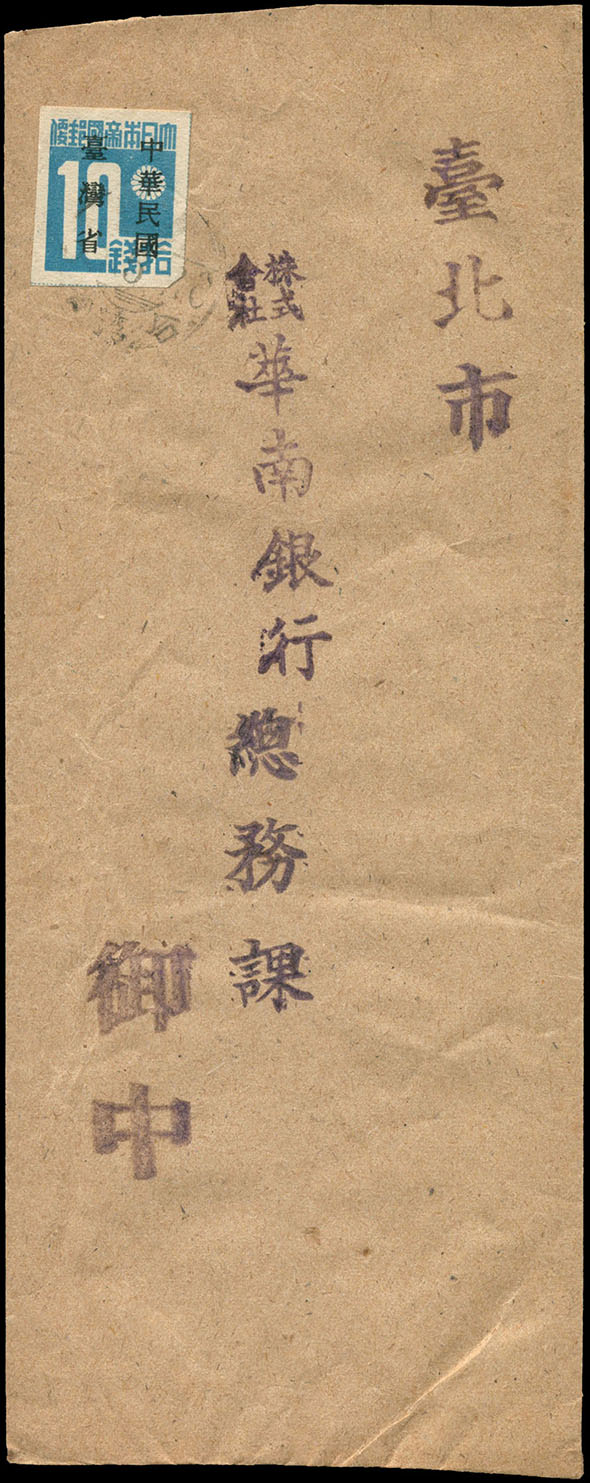 臺北市
株式
會社
華南銀行總務課
御中
大日本帝國郵便
中華民國
臺灣省
10
拾錢